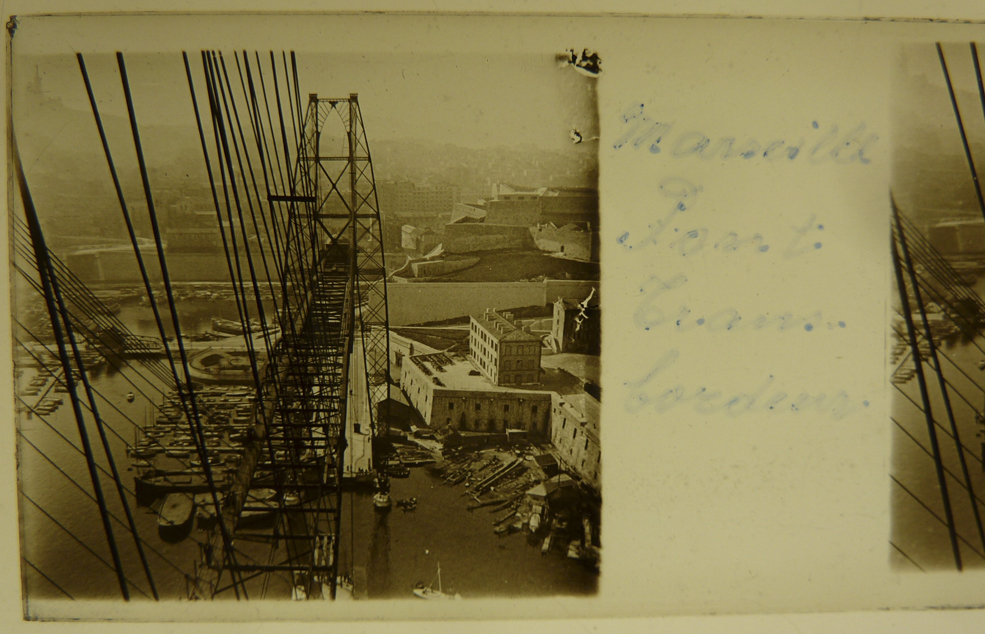 Marseille
Pont
Trans-
bordeur.